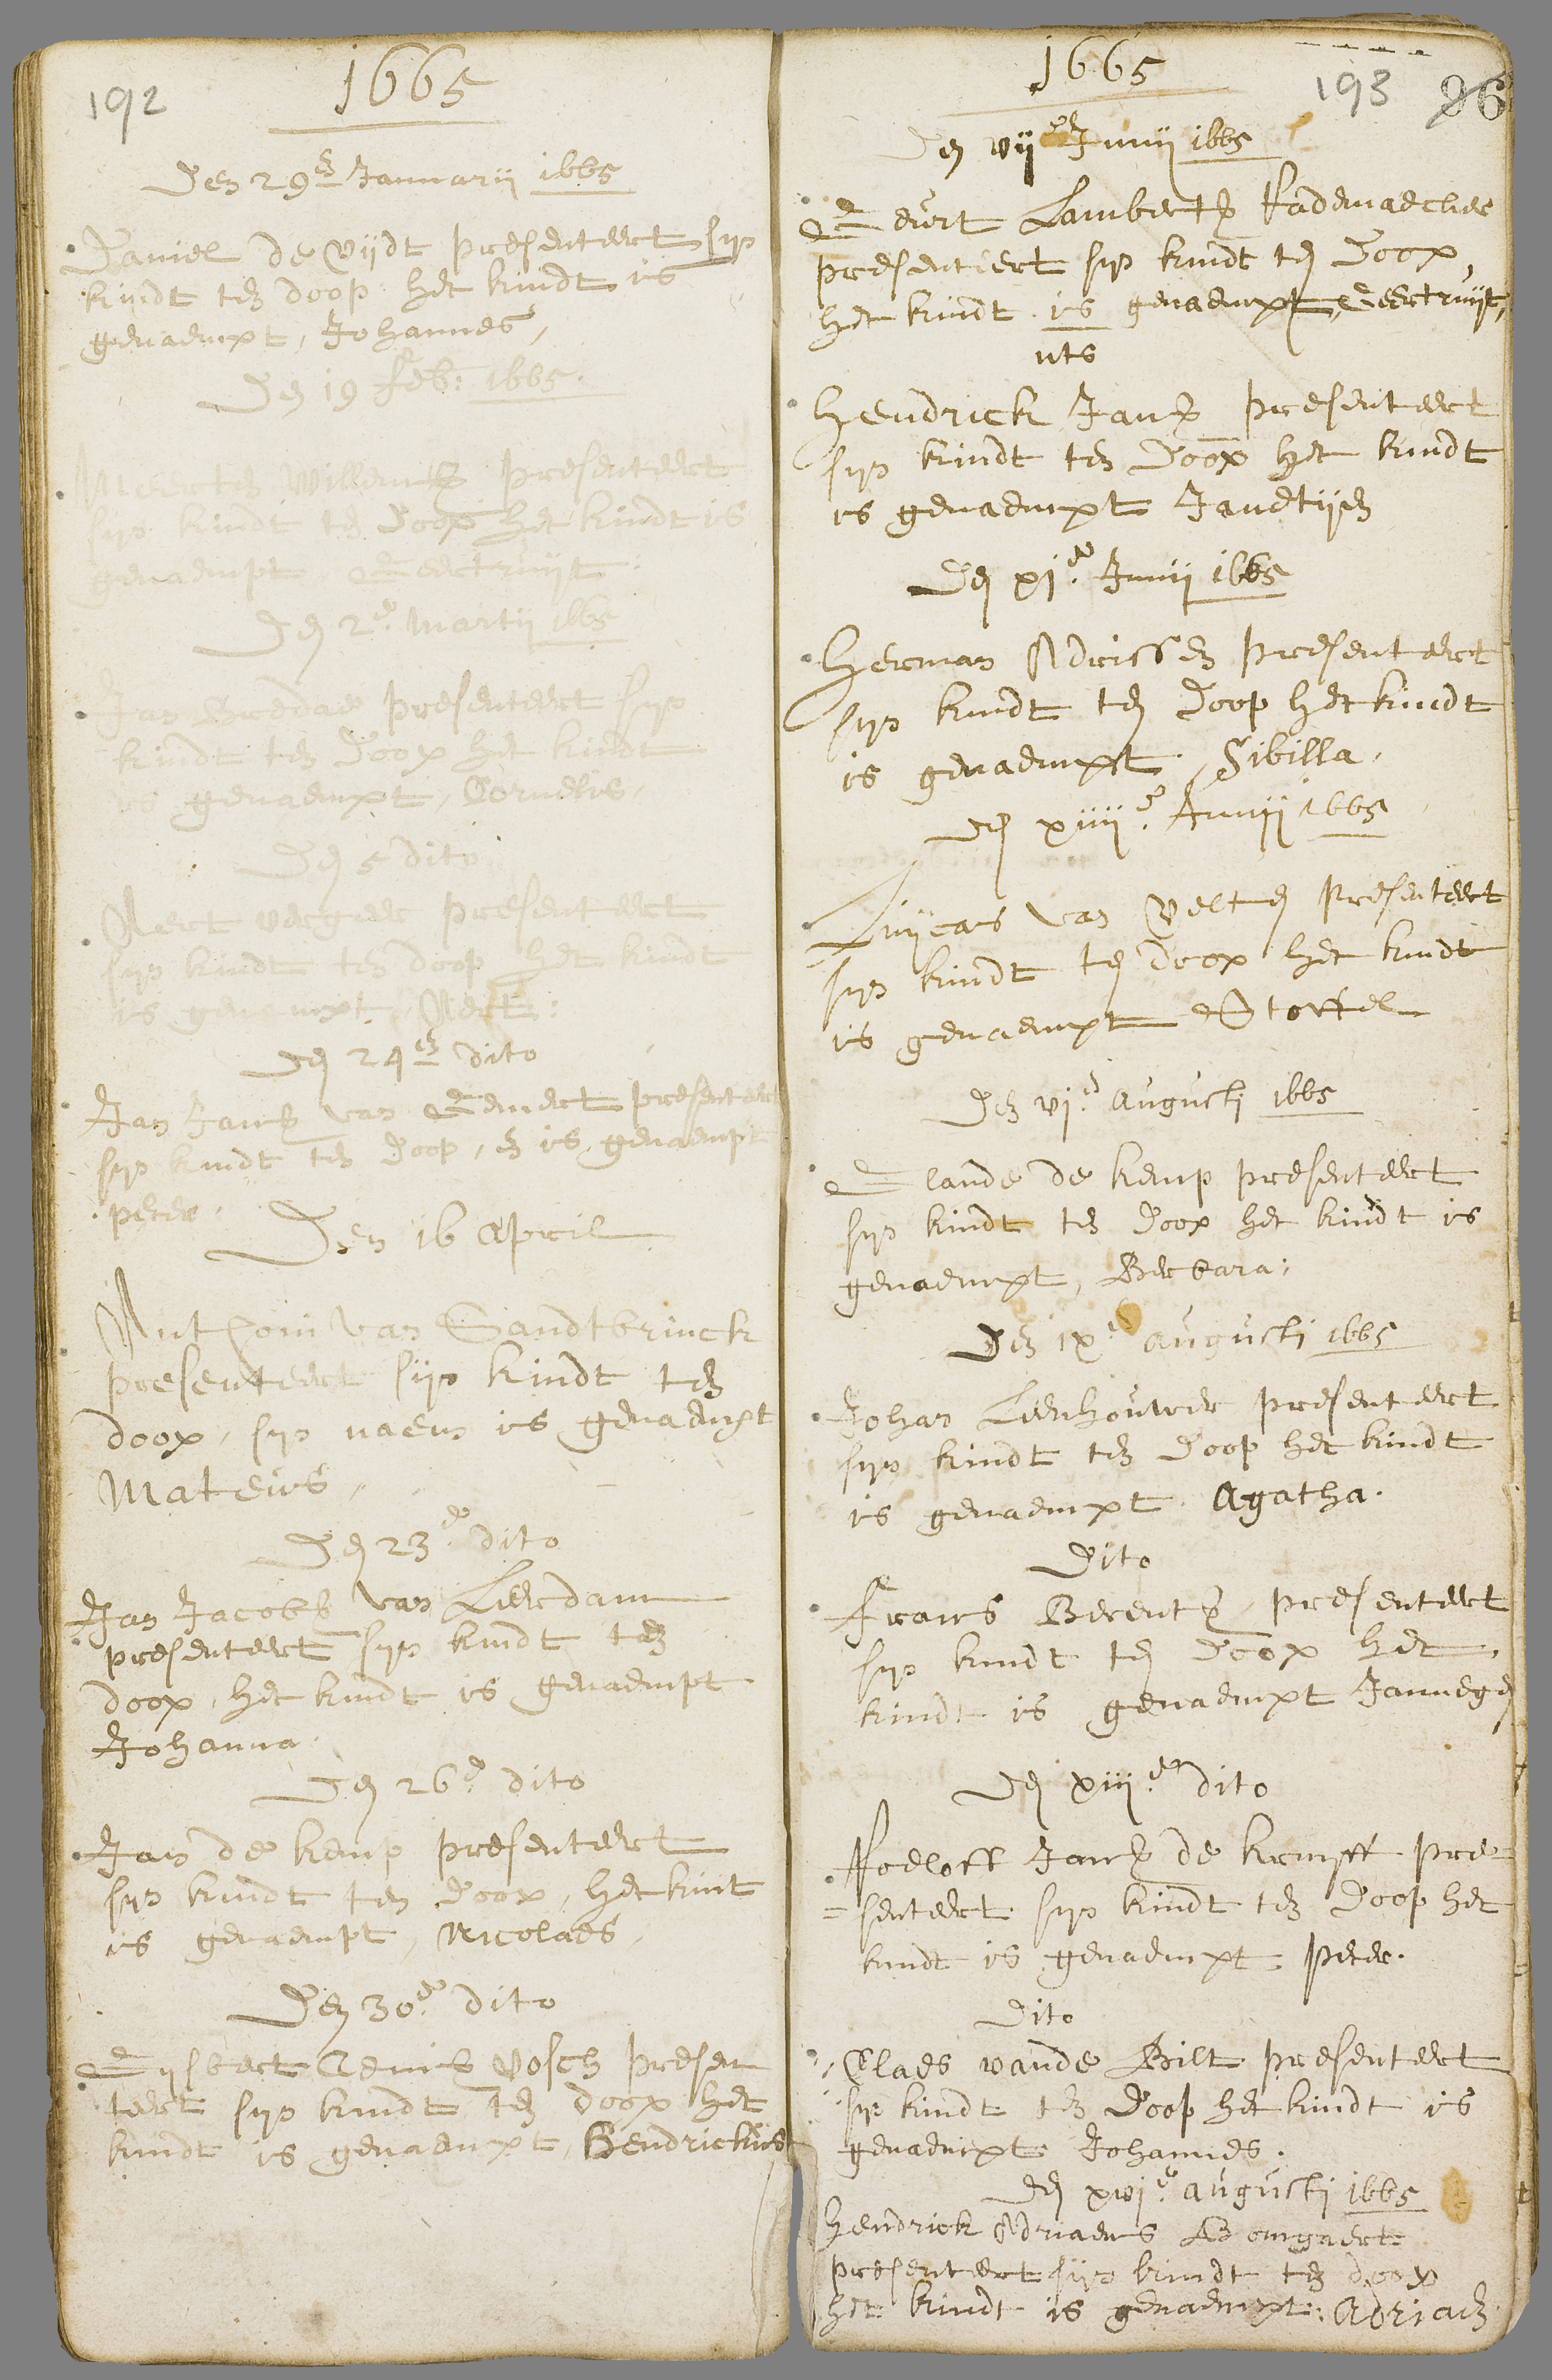 192
1665
Den 29en Januarii 1665
Daniel de Vijdt presenteert sijn
kindt ten doop het kindt is
genaempt, Johannes,
Den 19 feb: 1665.
Meerten Willemsz presenteert
sijn kindt ten Doop het kindt is
genaempt Geertruijt.
Den 2e. Martij 1665
Jan presenteert sijn
kindt ten Doop het kindt
is genaempt, Cornelis,
Den 5 dito
Aert vergeer presenteert
sijn kindt ten doop het kindt
is genaempt, Aert:
Den 24en dito
Jan Jansz van Gemert presenteert
sijn kindt ten Doop, en is genaempt
peter.
Den 16 April
Anthoni van Sandtbrinck
presenteert sijn kindt ten
doop, sijn naem is genaempt
Mateus,
Den 23e. dito
Jan Jacobs van Leerdam
presenteert sijn kindt ten
doop, het kindt is genaempt
Johanna.
Den 26e. dito
Jan de kemp presenteert
sijn kindt ten doop, het kint
is genaempt, Nicolaes,
Den 30e. dito
Gijsbert Vosch presen
teert sijn kindt ten doop het
kindt is genaempt, Hendrickus
1665
193 86
Den vije Junij 1665
Geurt Lambertsz Rademaecher
presenteert sijn kindt ten Doop,
het kindt is genaempt, Geertruijt,
uts
Hendrick Jansz presenteert
sijn kindt ten Doop het kindt
is genaempt Janetijen
Den xje. Junij 1665
Herman Adrissen presenteert
sijn kindt ten Doop het kindt
is genaempt, Sibilla.
Den xiiije. Junij 1665
Luijcas van Velten presenteert
sijn kindt ten doop het kindt
is genaempt Stoffel
Den vje. Augusti 1665
Glaude de kemp presenteert
sijn kindt ten doop het kindt is
genaempt, Berbara:
Den ixe. augusti 1665
Johan Leenhouwer presenteert
sijn kindt ten Doop het kindt
is genaempt. Agatha.
Dito
Frans Berentsz presenteert
sijn kindt ten Doop het
kindt is genaempt Jannegen
Den xiije. dito
Roeloff Jansz de kruijff pre=
=senteert sijn kindt ten Doop het
kindt is genaempt Peter.
Dito
Claes vande Bilt presenteert
sijn kindt ten Doop het kindt is
genaempt Johannes.
Den xvje. augusti 1665
Hendrick Adriaens Bomgaert
presenteert sijn kindt ten doop
het kindt is genaempt: Adriaen